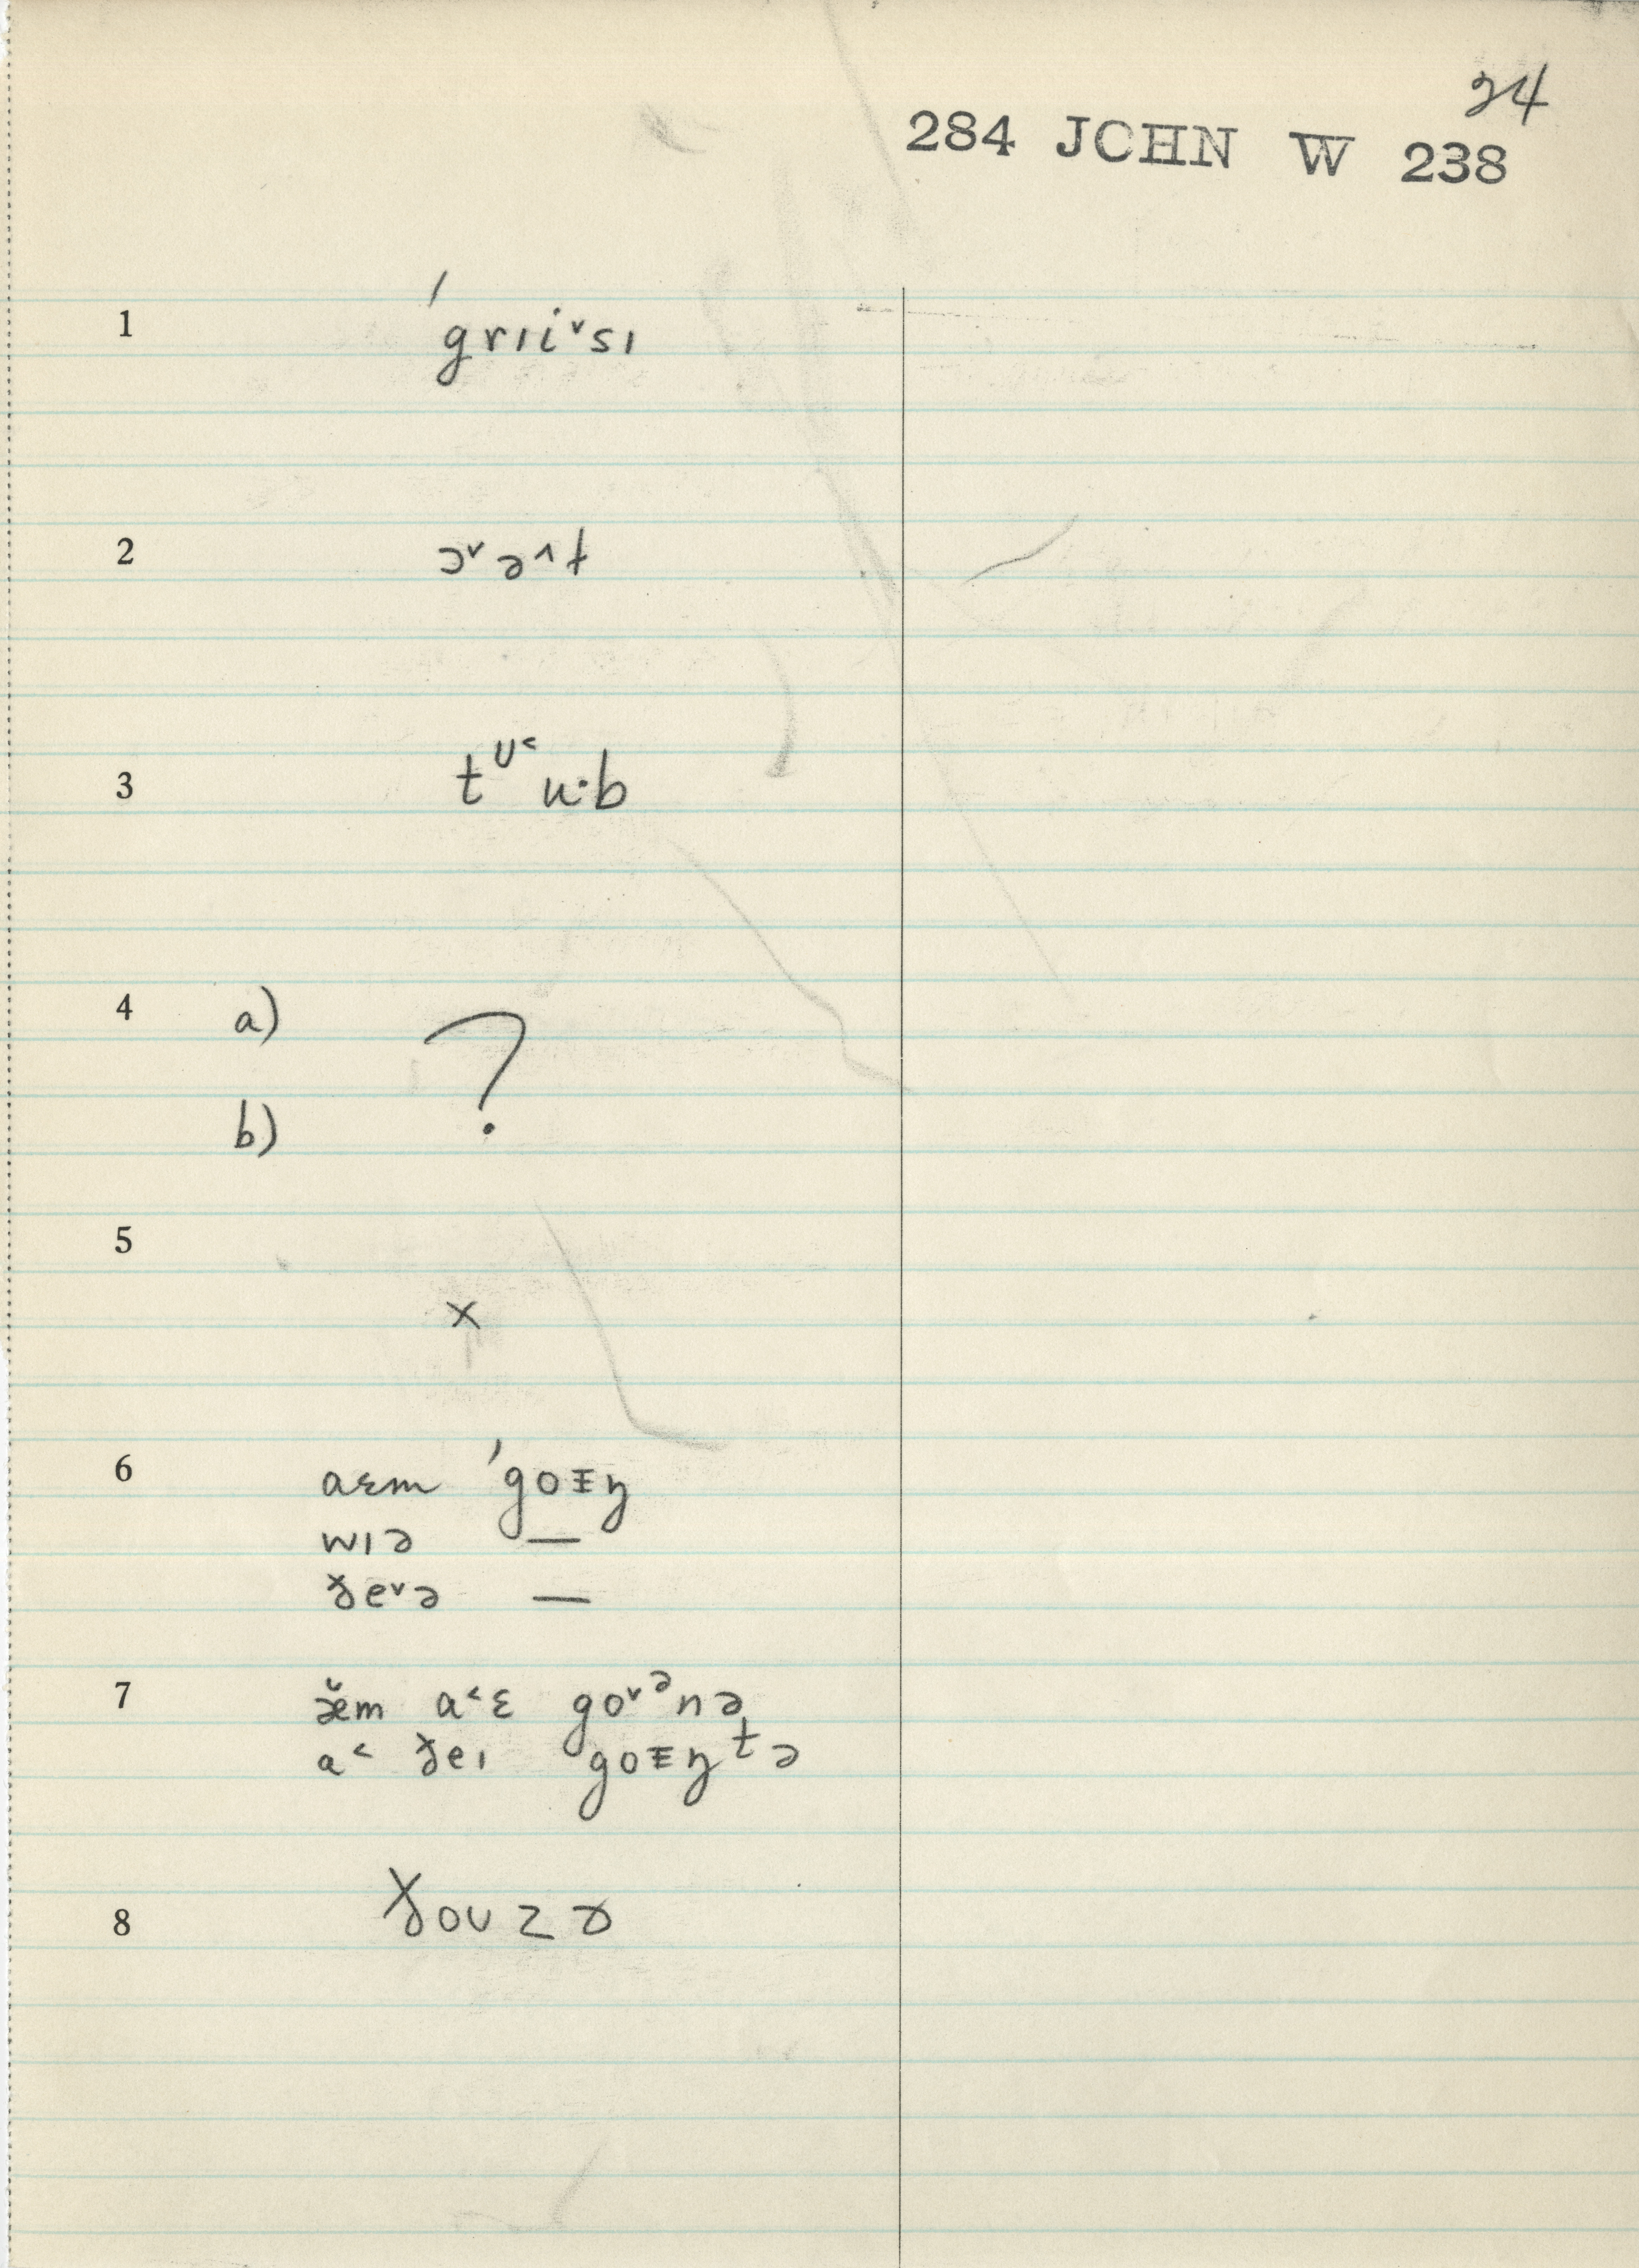 24
284 JOHN W 238
1 ˈgrɪi˅sɪ
2 ɔ˅ə^t
3 tᶷ˂u·b
4 a) ?
b)
5 x
6 aɛm ˈgoᵻŋ
wɪə —
ðe˅ə —
7 æ̌m a˂ɛ go˅ᵊnə
a˂ ðeɪ goᵻŋtə
8 ðoʊzɚ